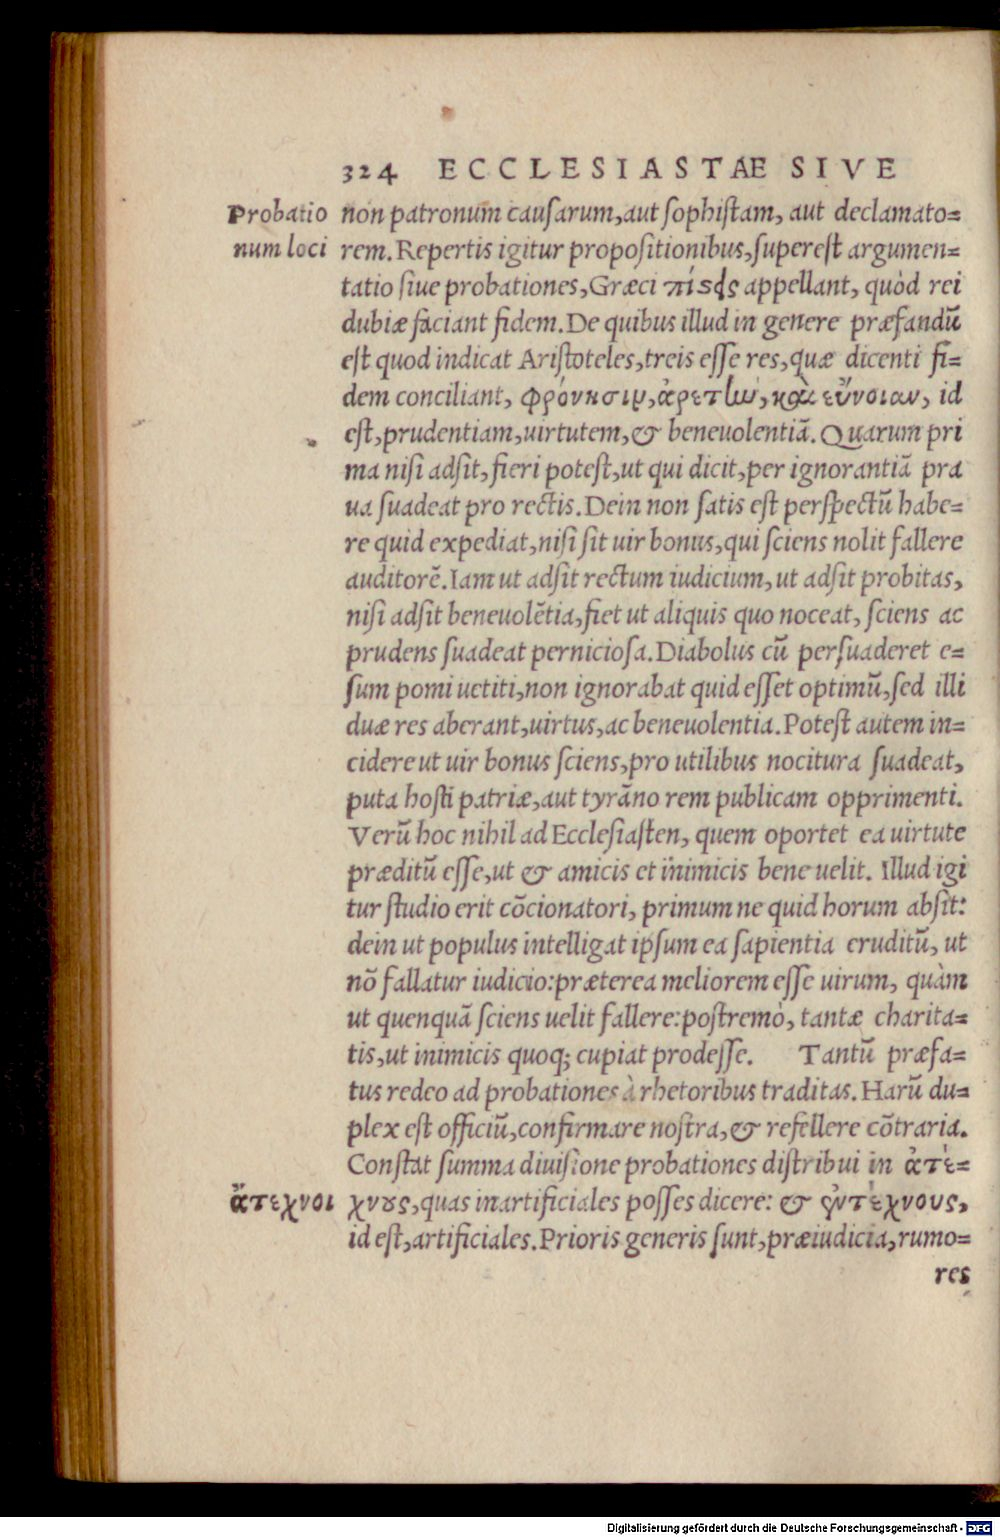 324 ECCLESIASTAE SIVE
Probatio non patronum causarum, aut sophistam, aut declamato=
num loci rem. Repertis igitur propositionibus, superest argumen=
tatio siue probationes, Græci πίςεις appellant, quòd rei
dubiæ faciant fidem. De quibus illud in genere præfandū
est quod indicat Aristoteles, treis esse res, quæ dicenti fi=
dem conciliant, φρόνησιμ, ἀρετὼ, καὶ εὔνοιαν, id
est, prudentiam, uirtutem, & beneuolentiā. Quarum pri
ma nisi adsit, fieri potest, ut qui dicit, per ignorantiā pra
ua suadeat pro rectis. Dein non satis est perspectū habe=
re quid expediat, nisi sit uir bonus, qui sciens nolit fallere
auditorē. Iam ut adsit rectum iudicium, ut adsit probitas,
nisi adsit beneuolētia, fiet ut aliquis quo noceat, sciens ac
prudens suadeat perniciosa. Diabolus cū persuaderet e=
sum pomi uetiti, non ignorabat quid esset optimū, sed illi
duæ res aberant, uirtus, ac beneuolentia. Potest autem in=
cidere ut uir bonus sciens, pro utilibus nocitura suadeat,
puta hosti patriæ, aut tyrāno rem publicam opprimenti.
Verū hoc nihil ad Ecclesiasten, quem oportet ea uirtute
præditū esse, ut & amicis et inimicis bene uelit. Illud igi
tur studio erit cōcionatori, primum ne quid horum absit:
dein ut populus intelligat ipsum ea sapientia eruditū, ut
nō fallatur iudicio: præterea meliorem esse uirum, quàm
ut quenquā sciens uelit fallere: postremò, tantæ charita=
tis, ut inimicis quoq; cupiat prodesse. Tantū præfa=
tus redeo ad probationes à rhetoribus traditas. Harū du=
plex est officiū, confirmare nostra, & refellere cōtraria.
Constat summa diuisione probationes distribui in ἀτέ=
ἄτεχνοι χνους, quas inartificiales posses dicere: & ἐντέχνους,
id est, artificiales. Prioris generis sunt, præiudicia, rumo=
res
Digitalisierung gefördert durch die Deutsche Forschungsgemeinschaft - DFG